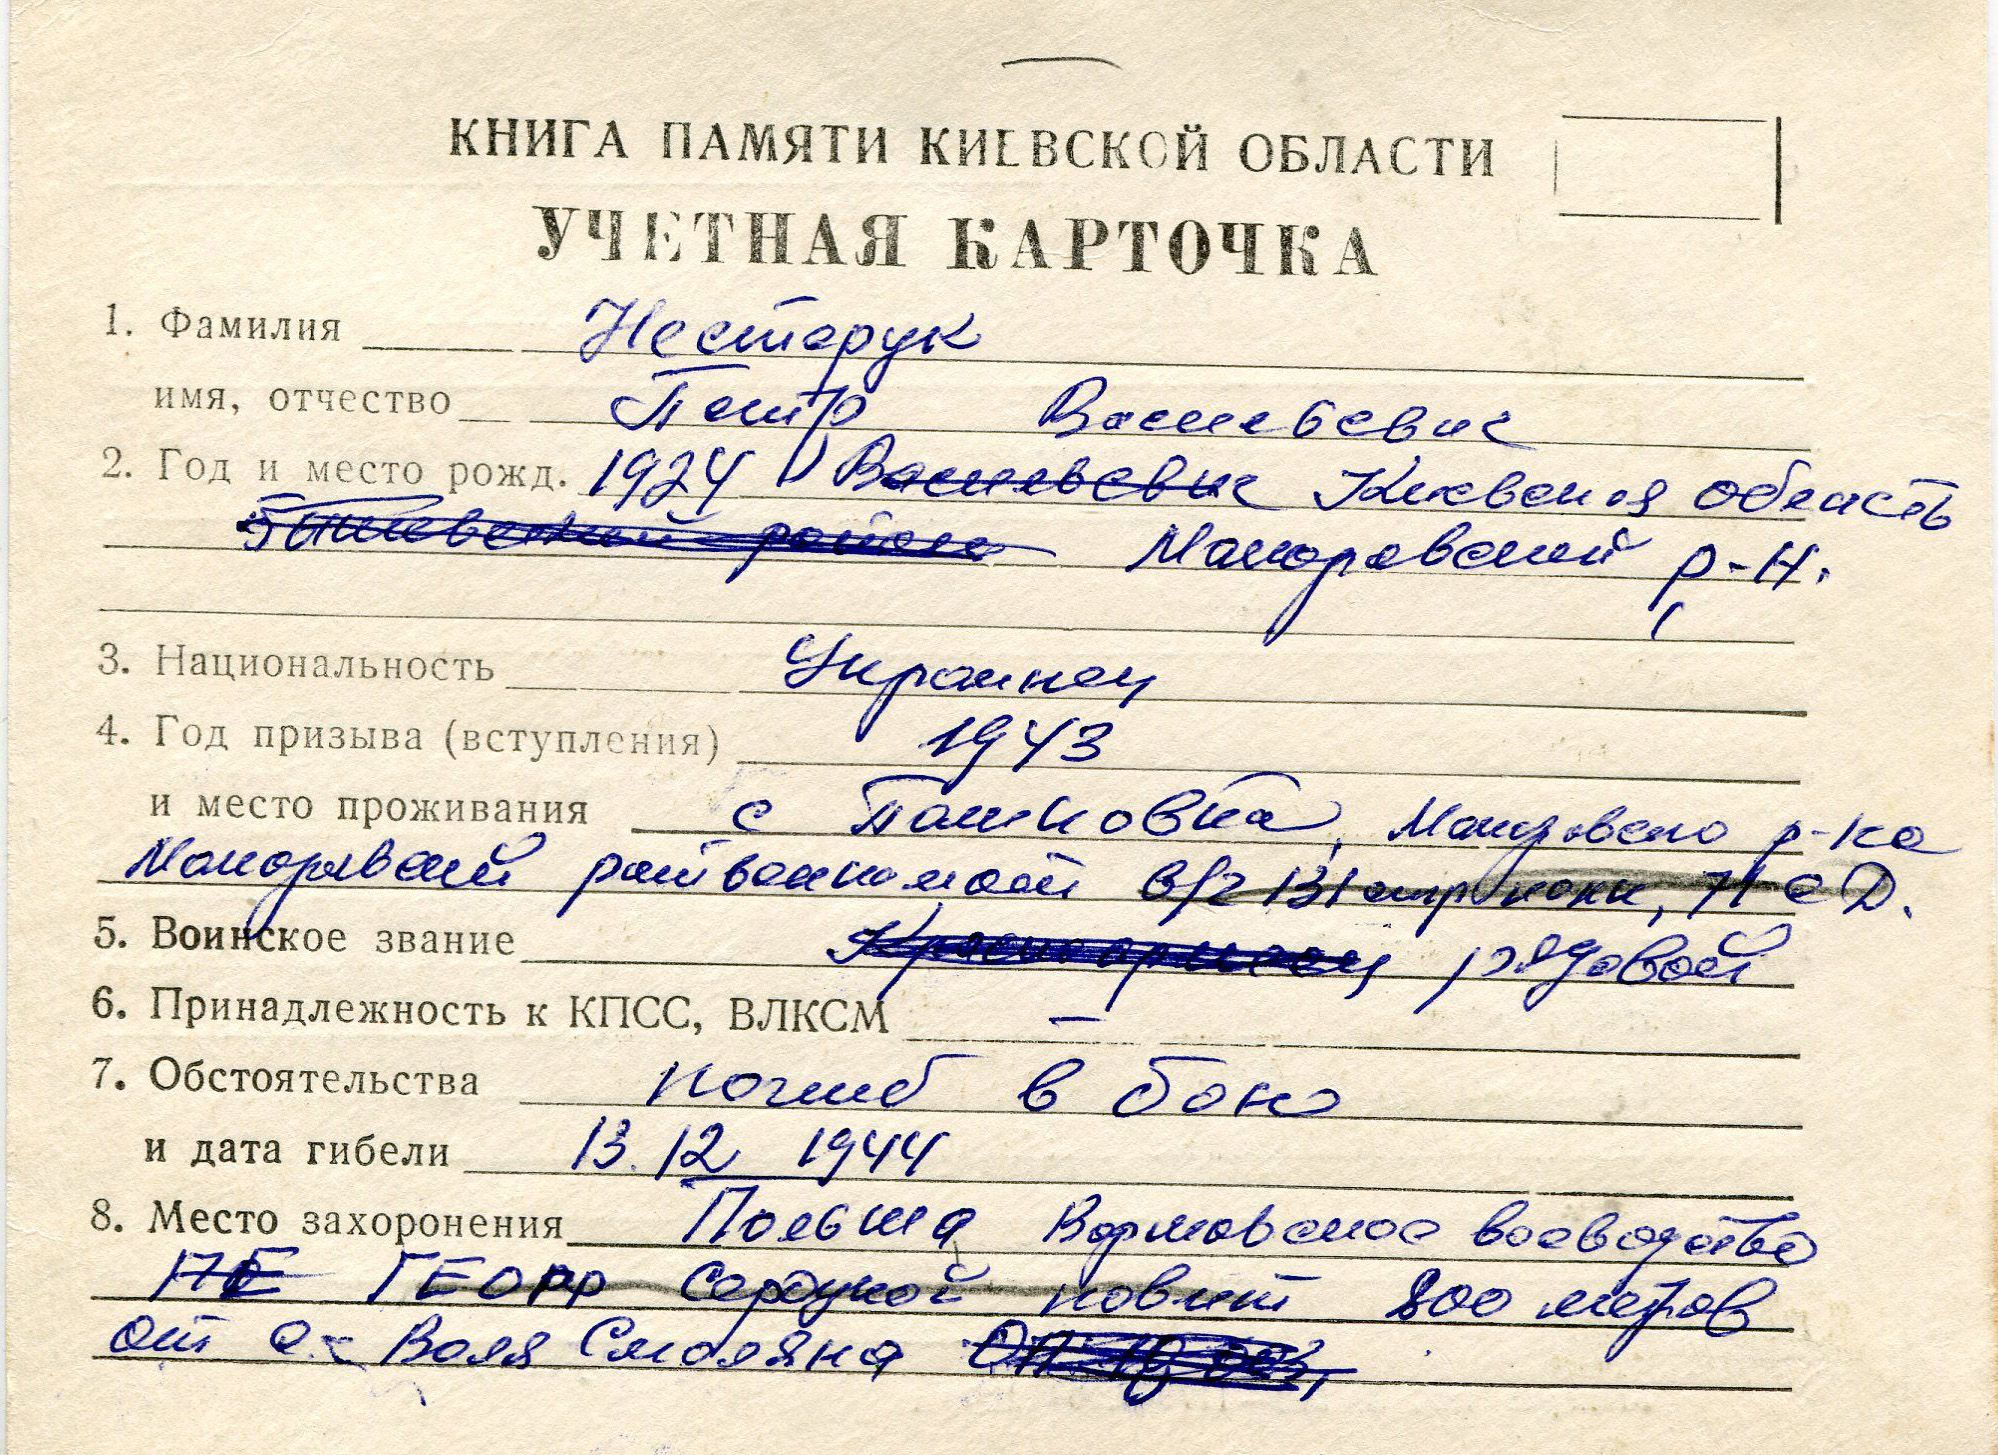 КНИГА ПАМЯТИ КИЕВСКОЙ ОБЛАСТИ
УЧЕТНАЯ КАРТОЧКА
1. Фамилия Нестерук
имя, отчество Петр Васильевич
2. Год и место рожд. 1924 Васильевич Киевская область
район Макаровский р-н.
3. Национальность Украинец
4. Год призыва (вступления) 1943
и место проживания с Пашковка, Макаровского р-на
Макаровский райвоенкомат в/ч 131 стр полк, 71 с Д.
5. Воинское звание Красноармеец рядовой
6. Принадлежность к КПСС, ВЛКСМ —
7. Обстоятельства погиб в бою
и дата гибели 13.12 1944
8. Место захоронения Польша Варшавское воеводство
повят 800 метров
от с. Воля Смоляна